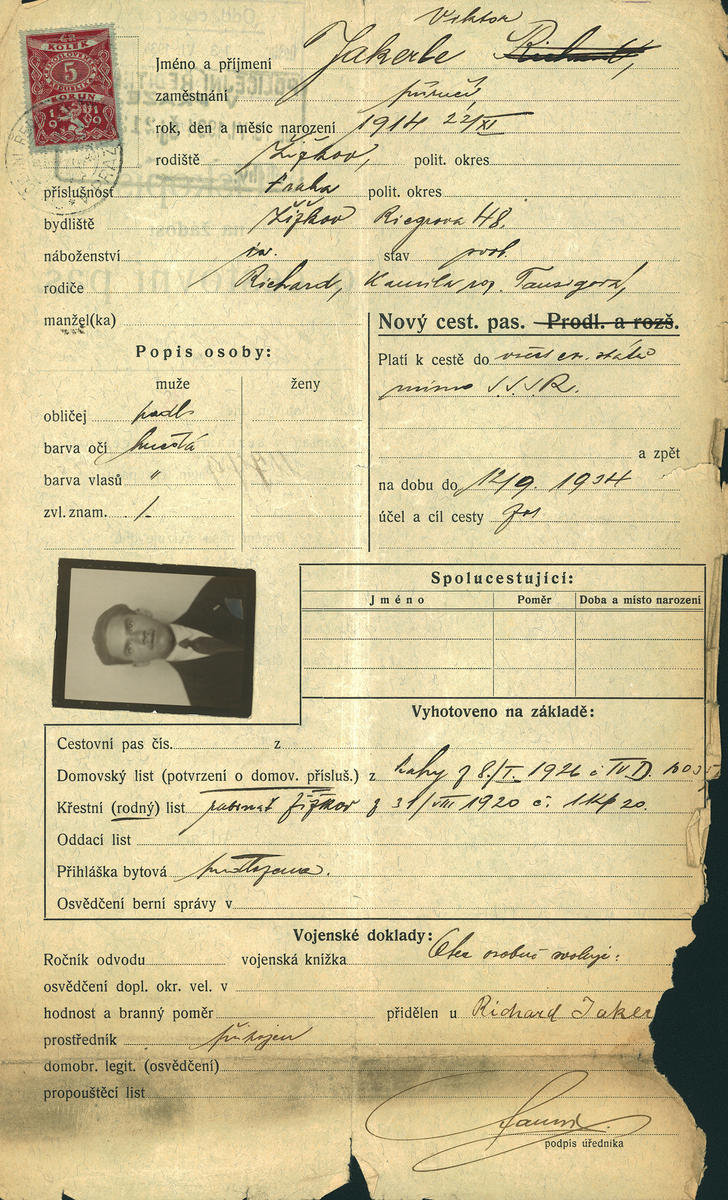 KOLEK
5
KORUN
1919
Viktor
Jméno a příjmení Jakerle Richard,
zaměstnání
rok, den a měsíc narození 1914 22/XI
rodiště Žižkov, polit. okres
příslušnost Praha polit. okres
bydliště Žižkov Riegrova 48.
náboženství iz. stav svob.
rodiče Richard, Kamila roz.
manžel(ka)
Nový cest. pas. Prodl. a rozš.
Popis osoby:
Platí k cestě do všech ev. států
mimo SSSR.
muže ženy
obličej podl.
barva očí hnědá
barva vlasů "
zvl. znam. /.
a zpět
na dobu do 12/9. 1934
účel a cíl cesty
Spolucestující:
Jméno Poměr Doba a místo narození
Vyhotoveno na základě:
Cestovní pas čís. z
Domovský list (potvrzení o domov. přísluš.) z Prahy z 8./I. 1926 č IV D.
Křestní (rodný) list rabinát Žižkov z 31/VIII 1920 č.
Oddací list
Přihláška bytová předložena.
Osvědčení berní správy v
Vojenské doklady:
Ročník odvodu vojenská knížka
Otec osobně svoluje:
osvědčení dopl. okr. vel. v
hodnost a branný poměr přidělen u Richard Jaker
prostředník připojen
domobr. legit. (osvědčení)
propouštěcí list
podpis úředníka